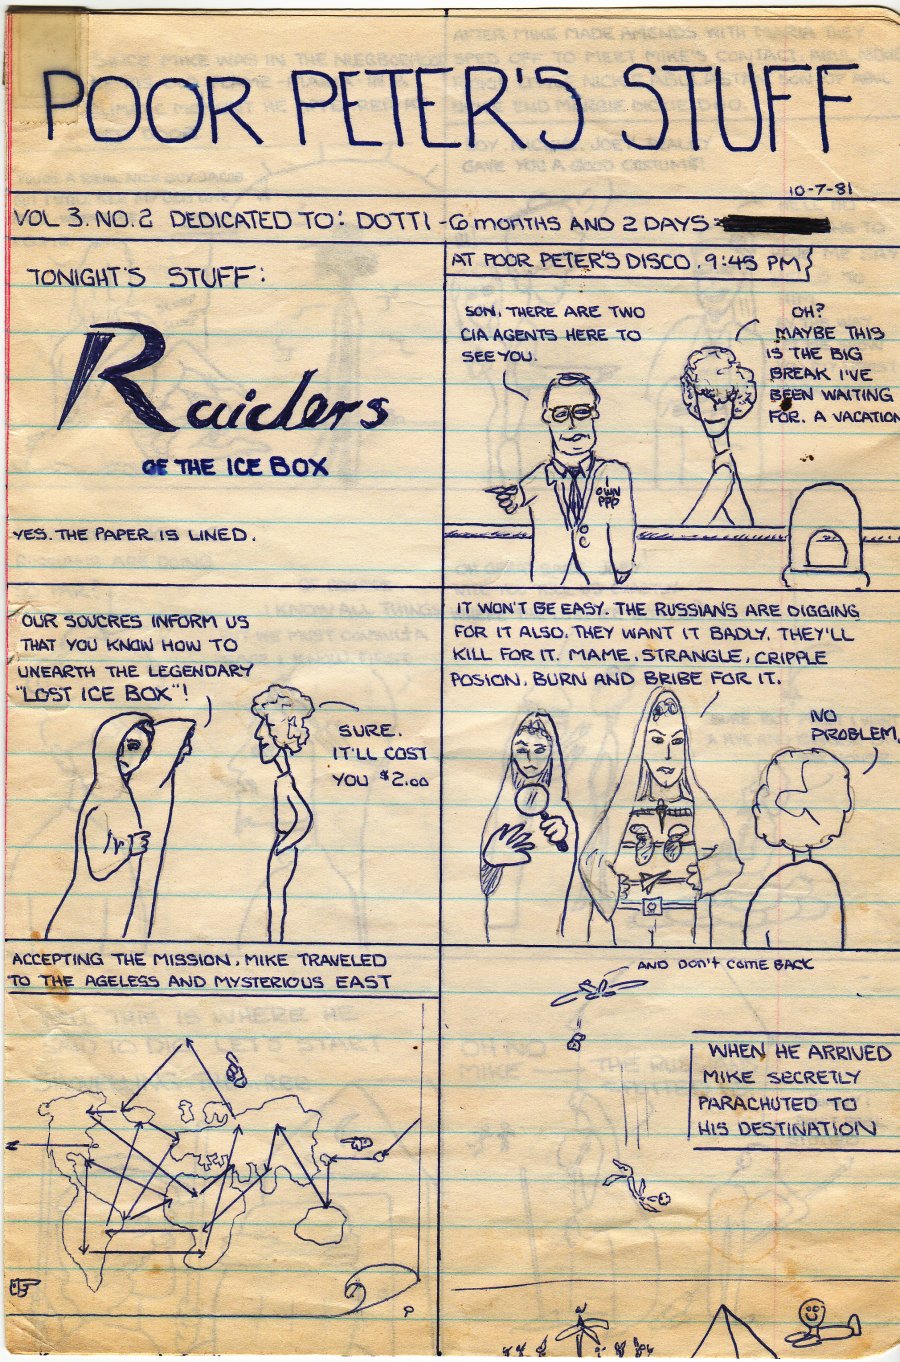 POOR PETER'S STUFF
10-7-81
VOL 3. NO. 2 DEDICATED TO: DOTTI - 6 MONTHS AND 2 DAYS
TONIGHT'S STUFF:
Raiders
OF THE ICE BOX
YES. THE PAPER IS LINED.
AT POOR PETER'S DISCO. 9:45 PM
SON, THERE ARE TWO
CIA AGENTS HERE TO
SEE YOU.
OH?
MAYBE THIS
IS THE BIG
BREAK I'VE
BEEN WAITING
FOR. A VACATION
I
OWN
PPD
OUR SOUCRES INFORM US
THAT YOU KNOW HOW TO
UNEARTH THE LEGENDARY
"LOST ICE BOX"!
SURE.
IT'LL COST
YOU $2.00
IT WON'T BE EASY. THE RUSSIANS ARE DIGGING
FOR IT ALSO. THEY WANT IT BADLY. THEY'LL
KILL FOR IT. MAME, STRANGLE, CRIPPLE
POSION, BURN AND BRIBE FOR IT.
NO
PROBLEM.
ACCEPTING THE MISSION, MIKE TRAVELED
TO THE AGELESS AND MYSTERIOUS EAST
AND DON'T COME BACK
WHEN HE ARRIVED
MIKE SECRETLY
PARACHUTED TO
HIS DESTINATION